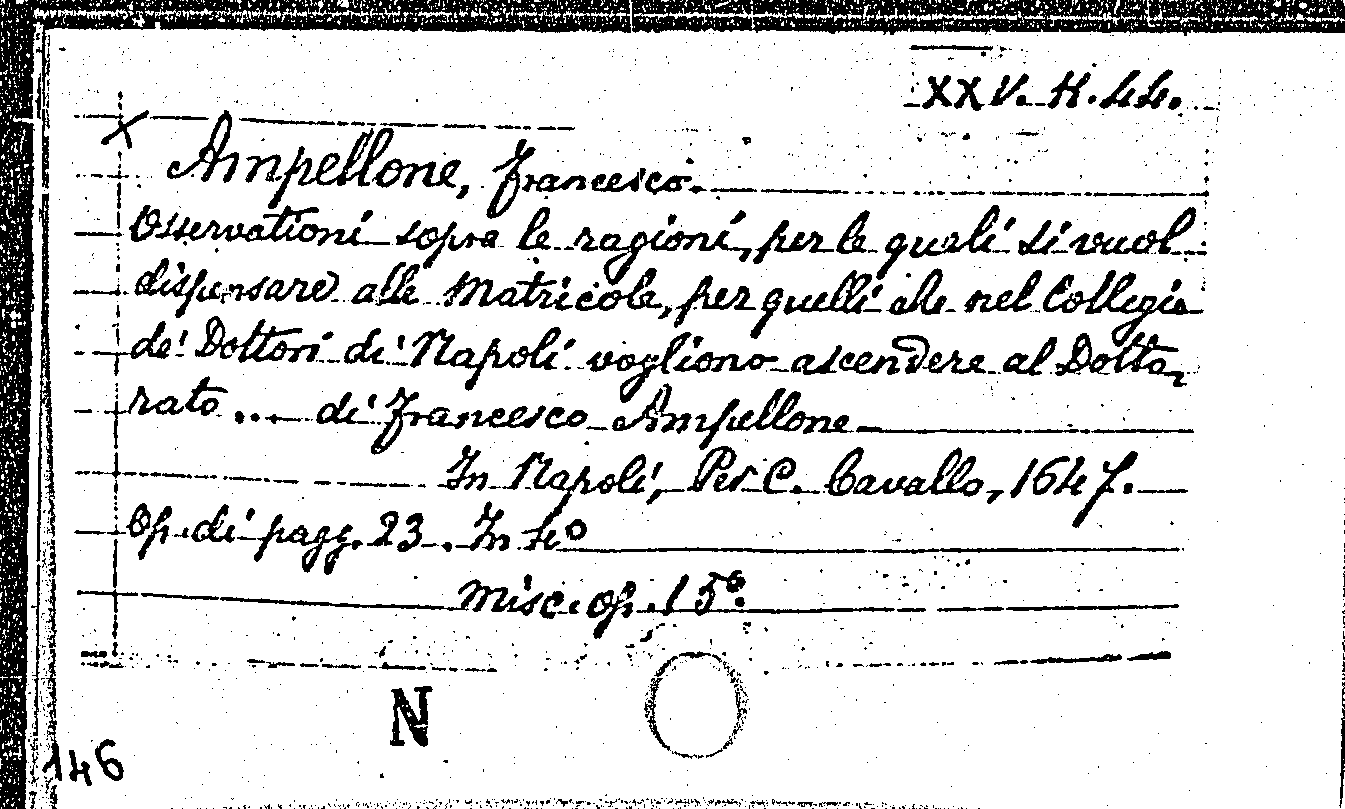 XXV. H. 44.
Ampellone, Francesco.
Osservationi sopra le ragioni, per le quali si vuol
dispensare alle Matricole, per quelli che nel Collegio
de' Dottori di Napoli vogliono ascendere al Dotto,
rato ... di Francesco Ampellone
In Napoli, Per C. Cavallo, 1647.
Op. di pagg. 23. In 4º
Misc. Op. 15º.
N
146